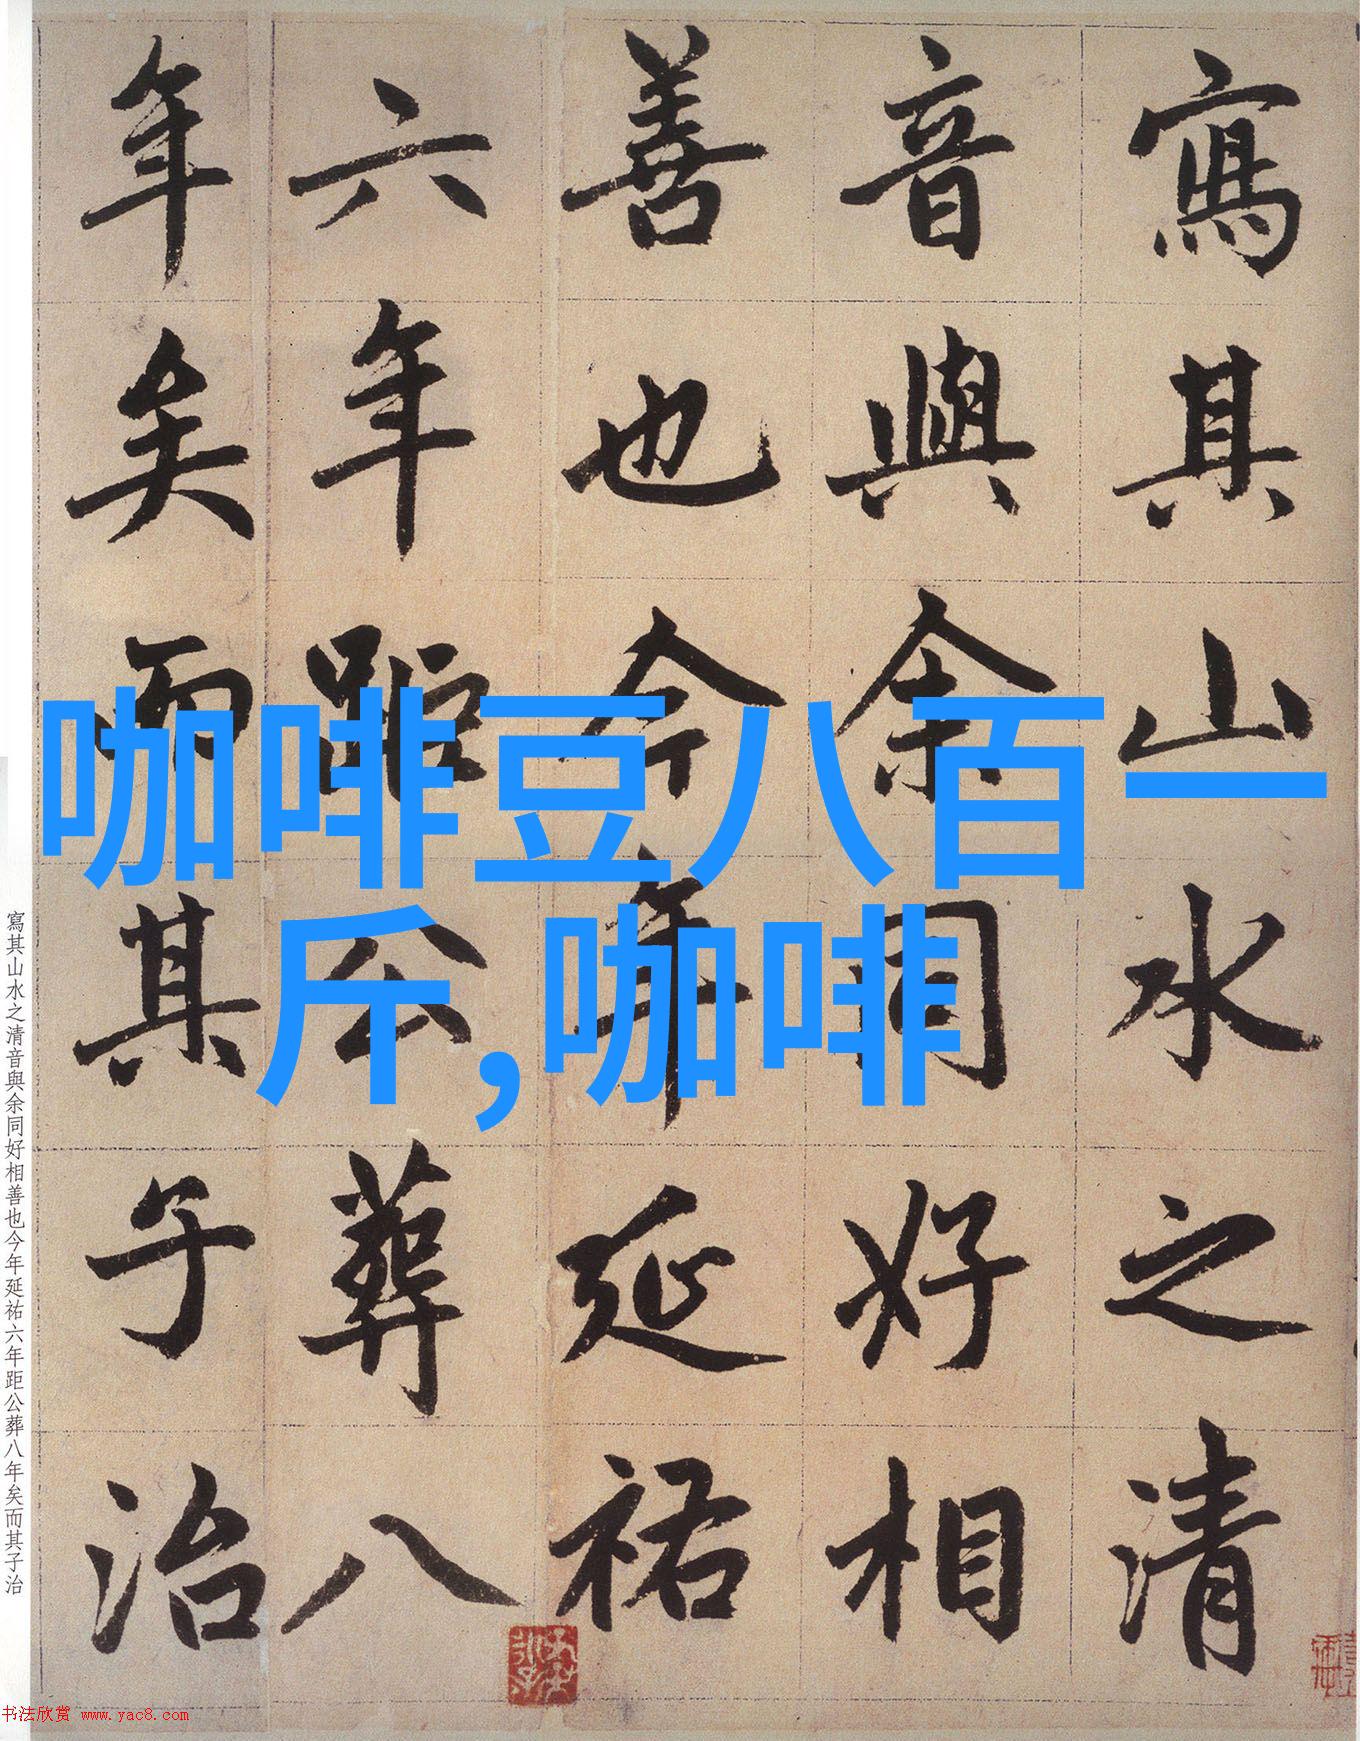 寫其山水之清
音與余同好相
善也今年延祐
六年距公葬八
年矣而其子治
咖啡豆八百一
斤,咖啡
寫其山水之清音與余同好相善也今年延祐六年距公葬八年矣而其子治
书法欣赏 www.yac8.com